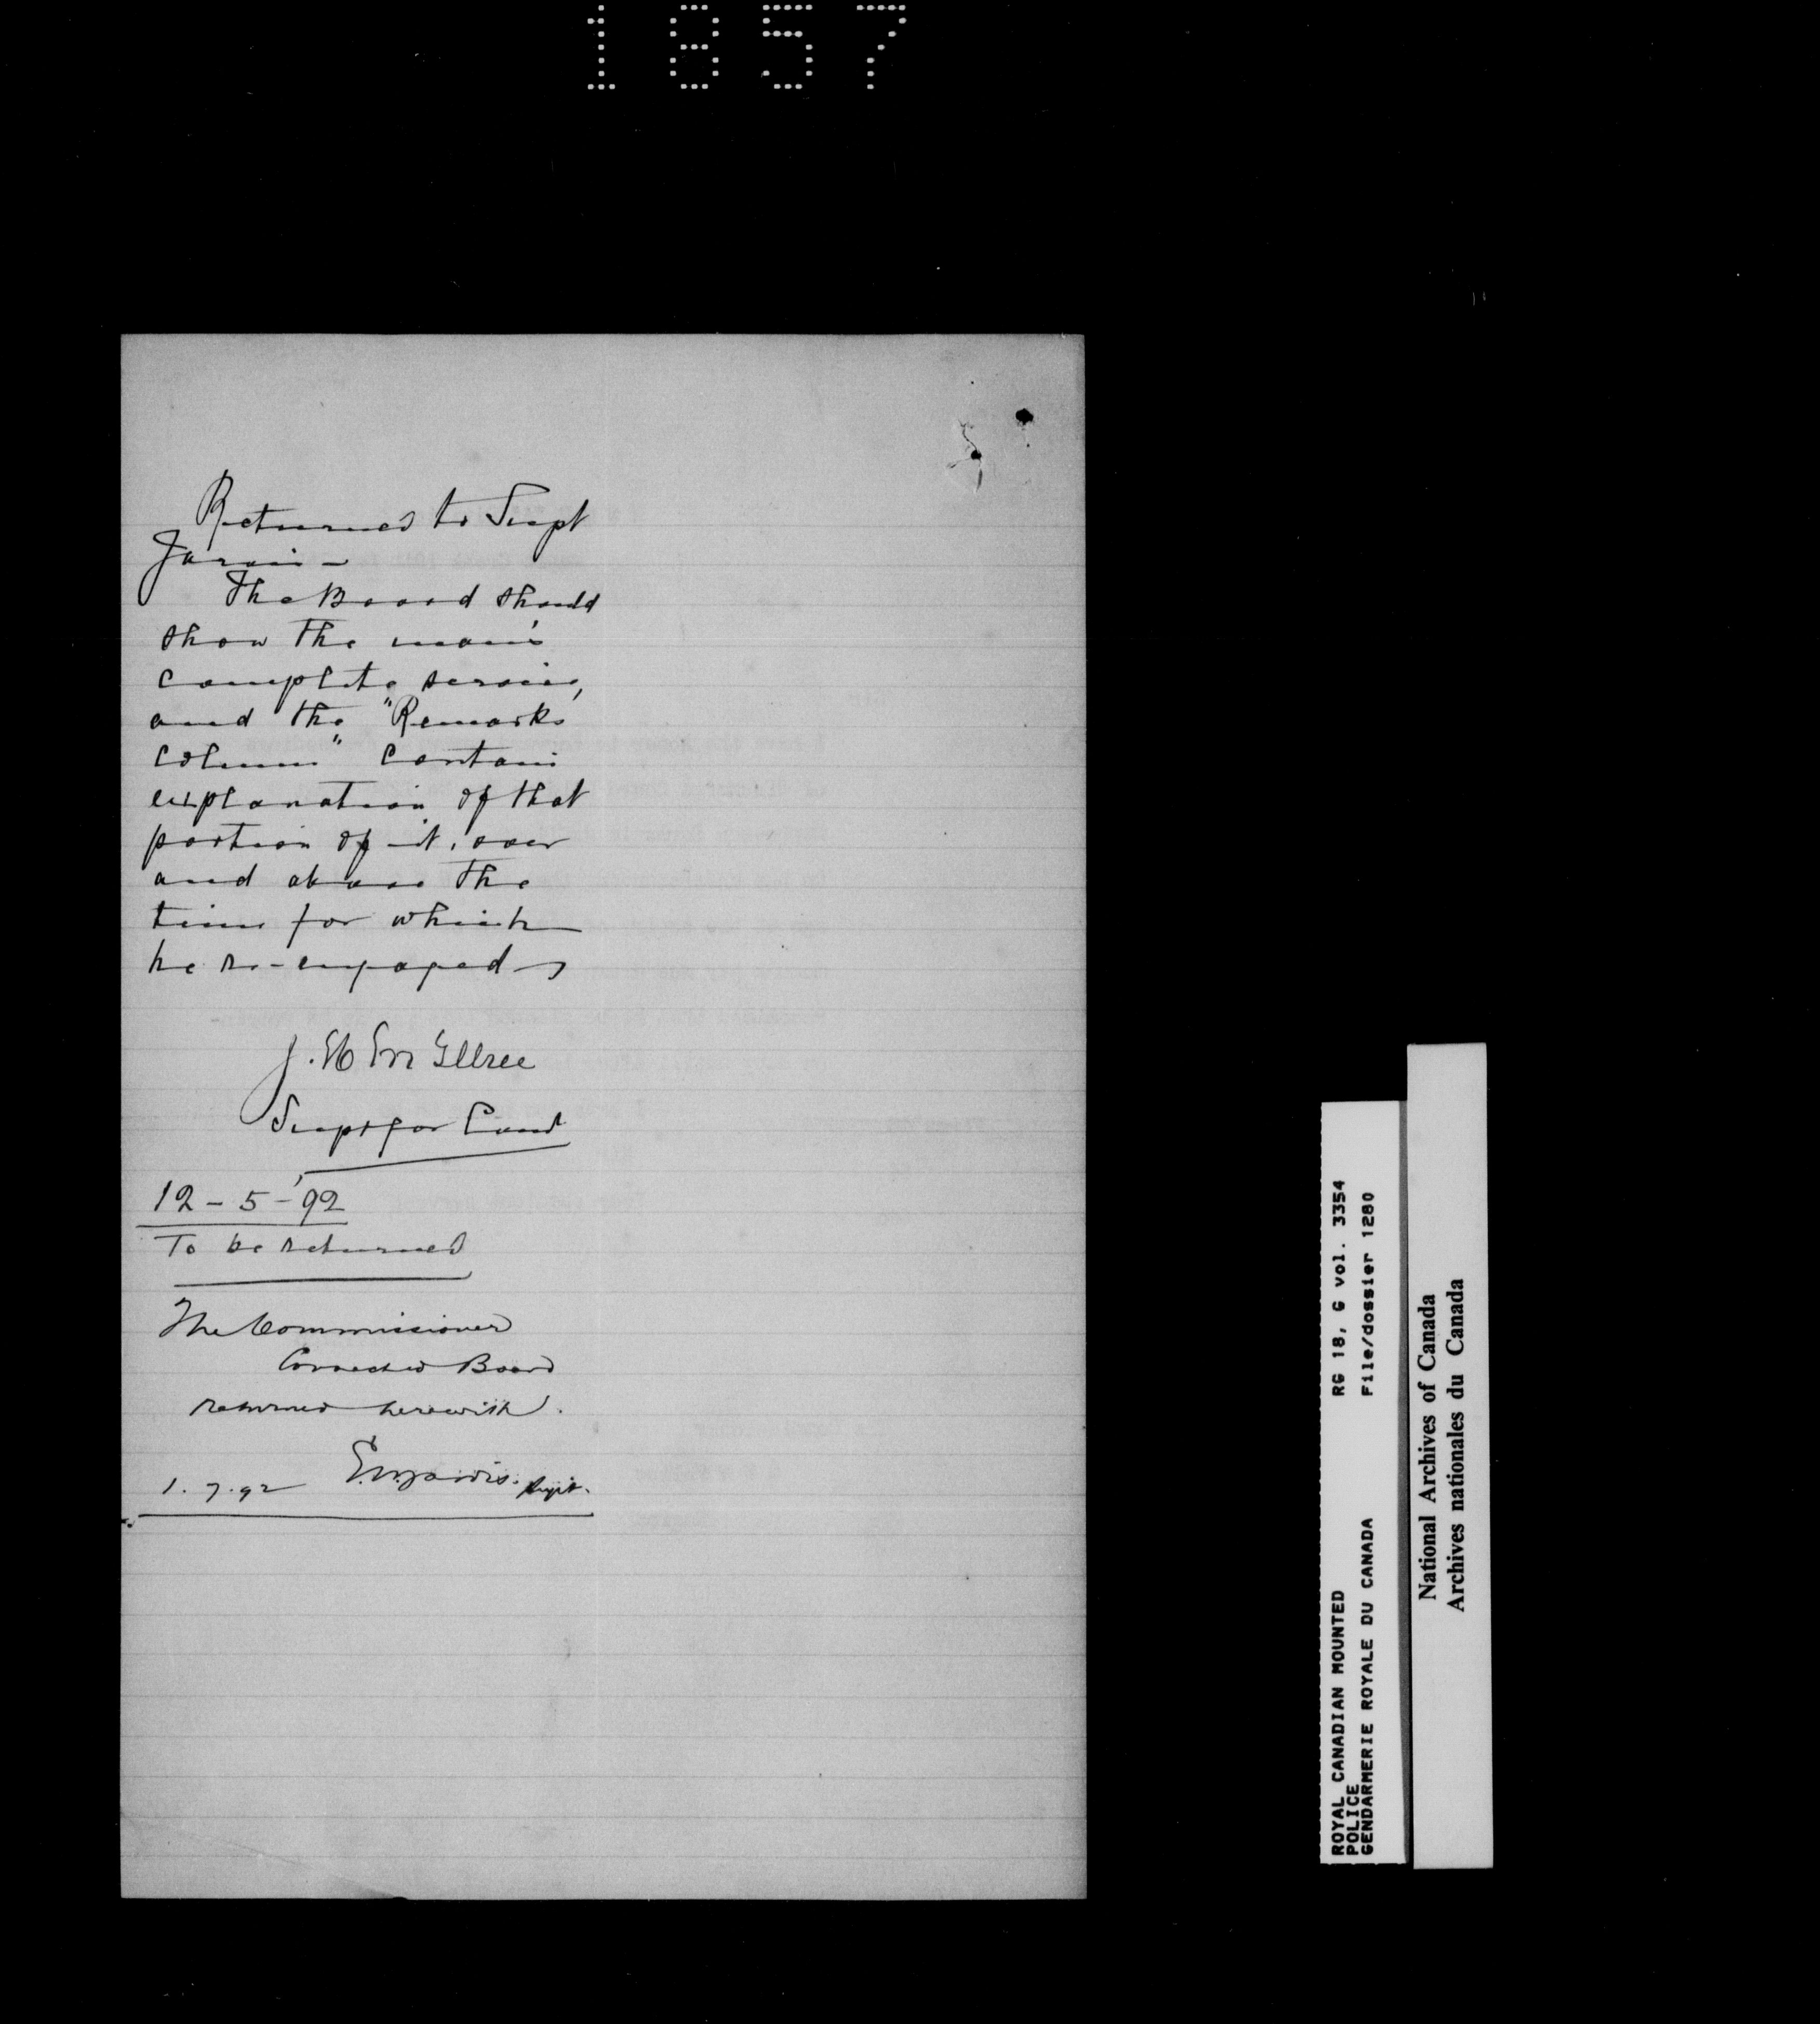 1857
Returned to Supt
Jarvis –
The Board should
show the man's
complete service,
and the "Remarks
column" contain
explanation of that
portion of it, over
and above the
time for which
he re-engaged
J. H. McIllree
Supt for Comd
12 – 5 – '92
To be returned
The Commissioner
Corrected Board
returned herewith.
1. 7. 92 E.W. Jarvis. Supt.
ROYAL CANADIAN MOUNTED RG 18, G vol. 3354
POLICE
GENDARMERIE ROYALE DU CANADA File/dossier 1280
National Archives of Canada
Archives nationales du Canada